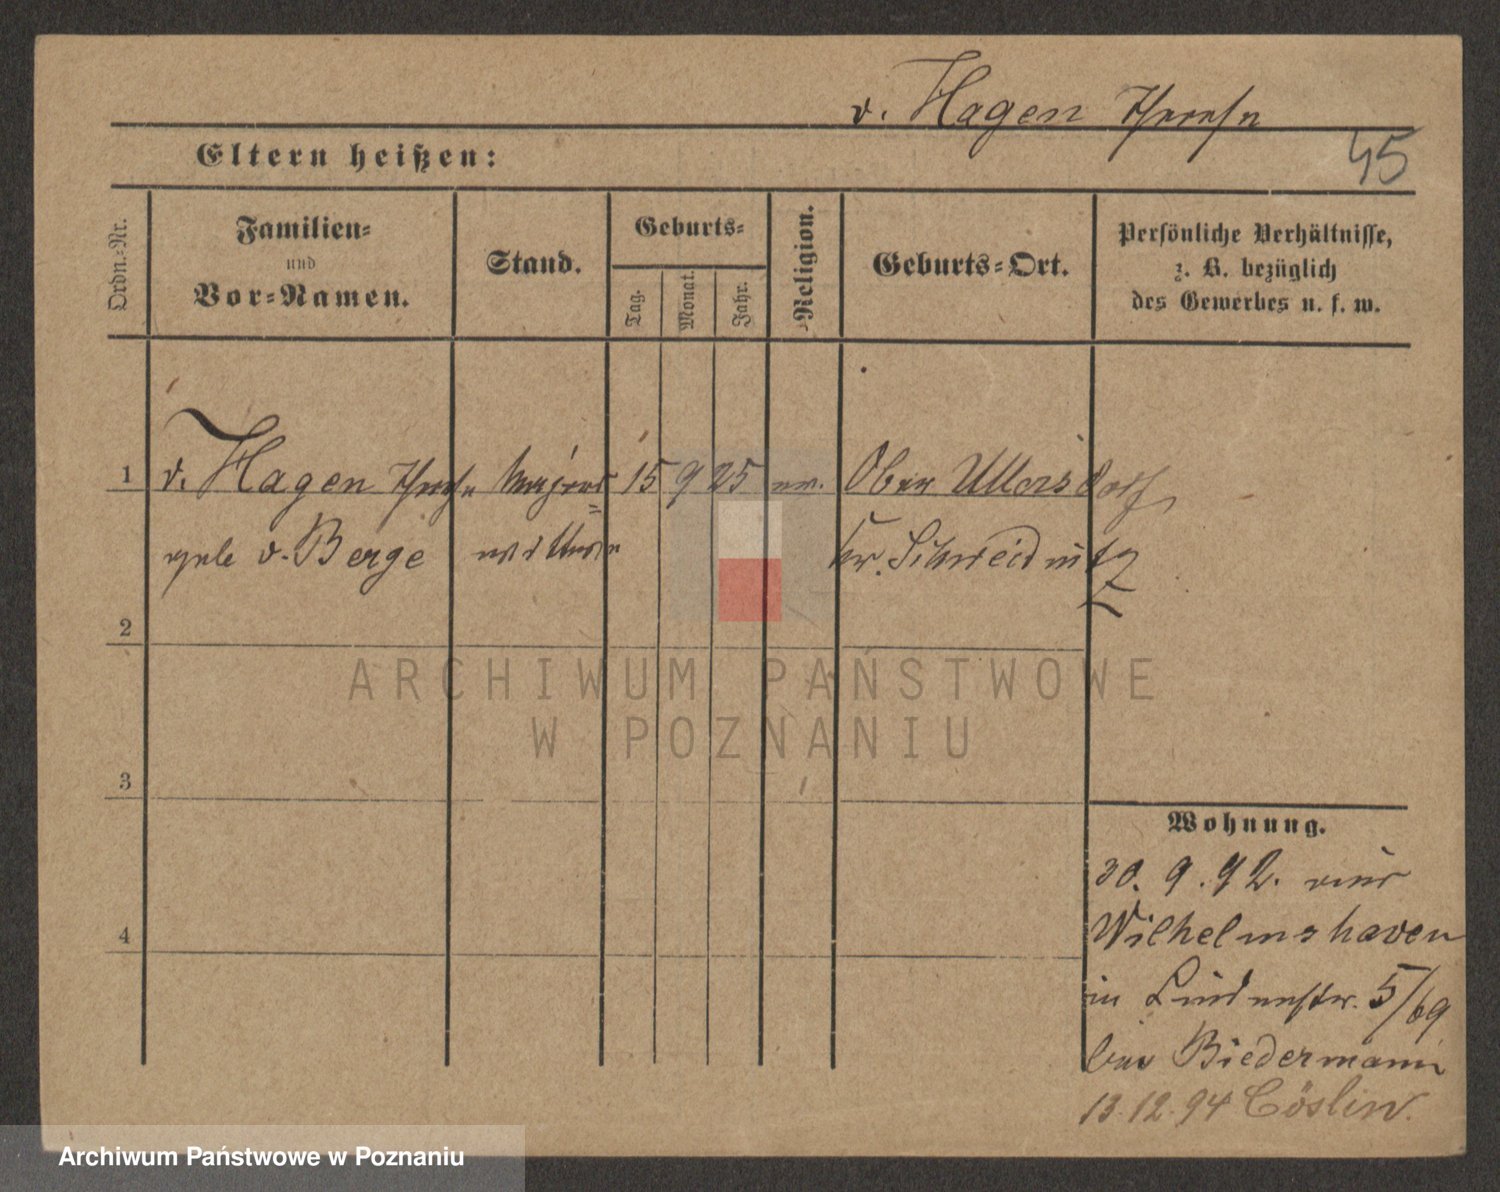 v. Hagen Therese
45
Eltern heißen:
Ordn.-Nr.
Familien-
und
Vor-Namen.
Stand.
Geburts-
Tag.
Monat.
Jahr.
Religion.
Geburts-Ort.
Persönliche Verhältnisse,
z. B. bezüglich
des Gewerbes u. s. w.
1 v. Hagen Therese Majors= 15 9 25 ev. Ober Ullersdorf
geb v. Berge wittwe Kr. Schweidnitz
2
3
4
ARCHIWUM PAŃSTWOWE
W POZNANIU
Wohnung.
30. 9. 92. aus
Wilhelmshaven
in Lindenstr. 5/69
bei Biedermann
13.12.94 Cöslin.
Archiwum Państwowe w Poznaniu